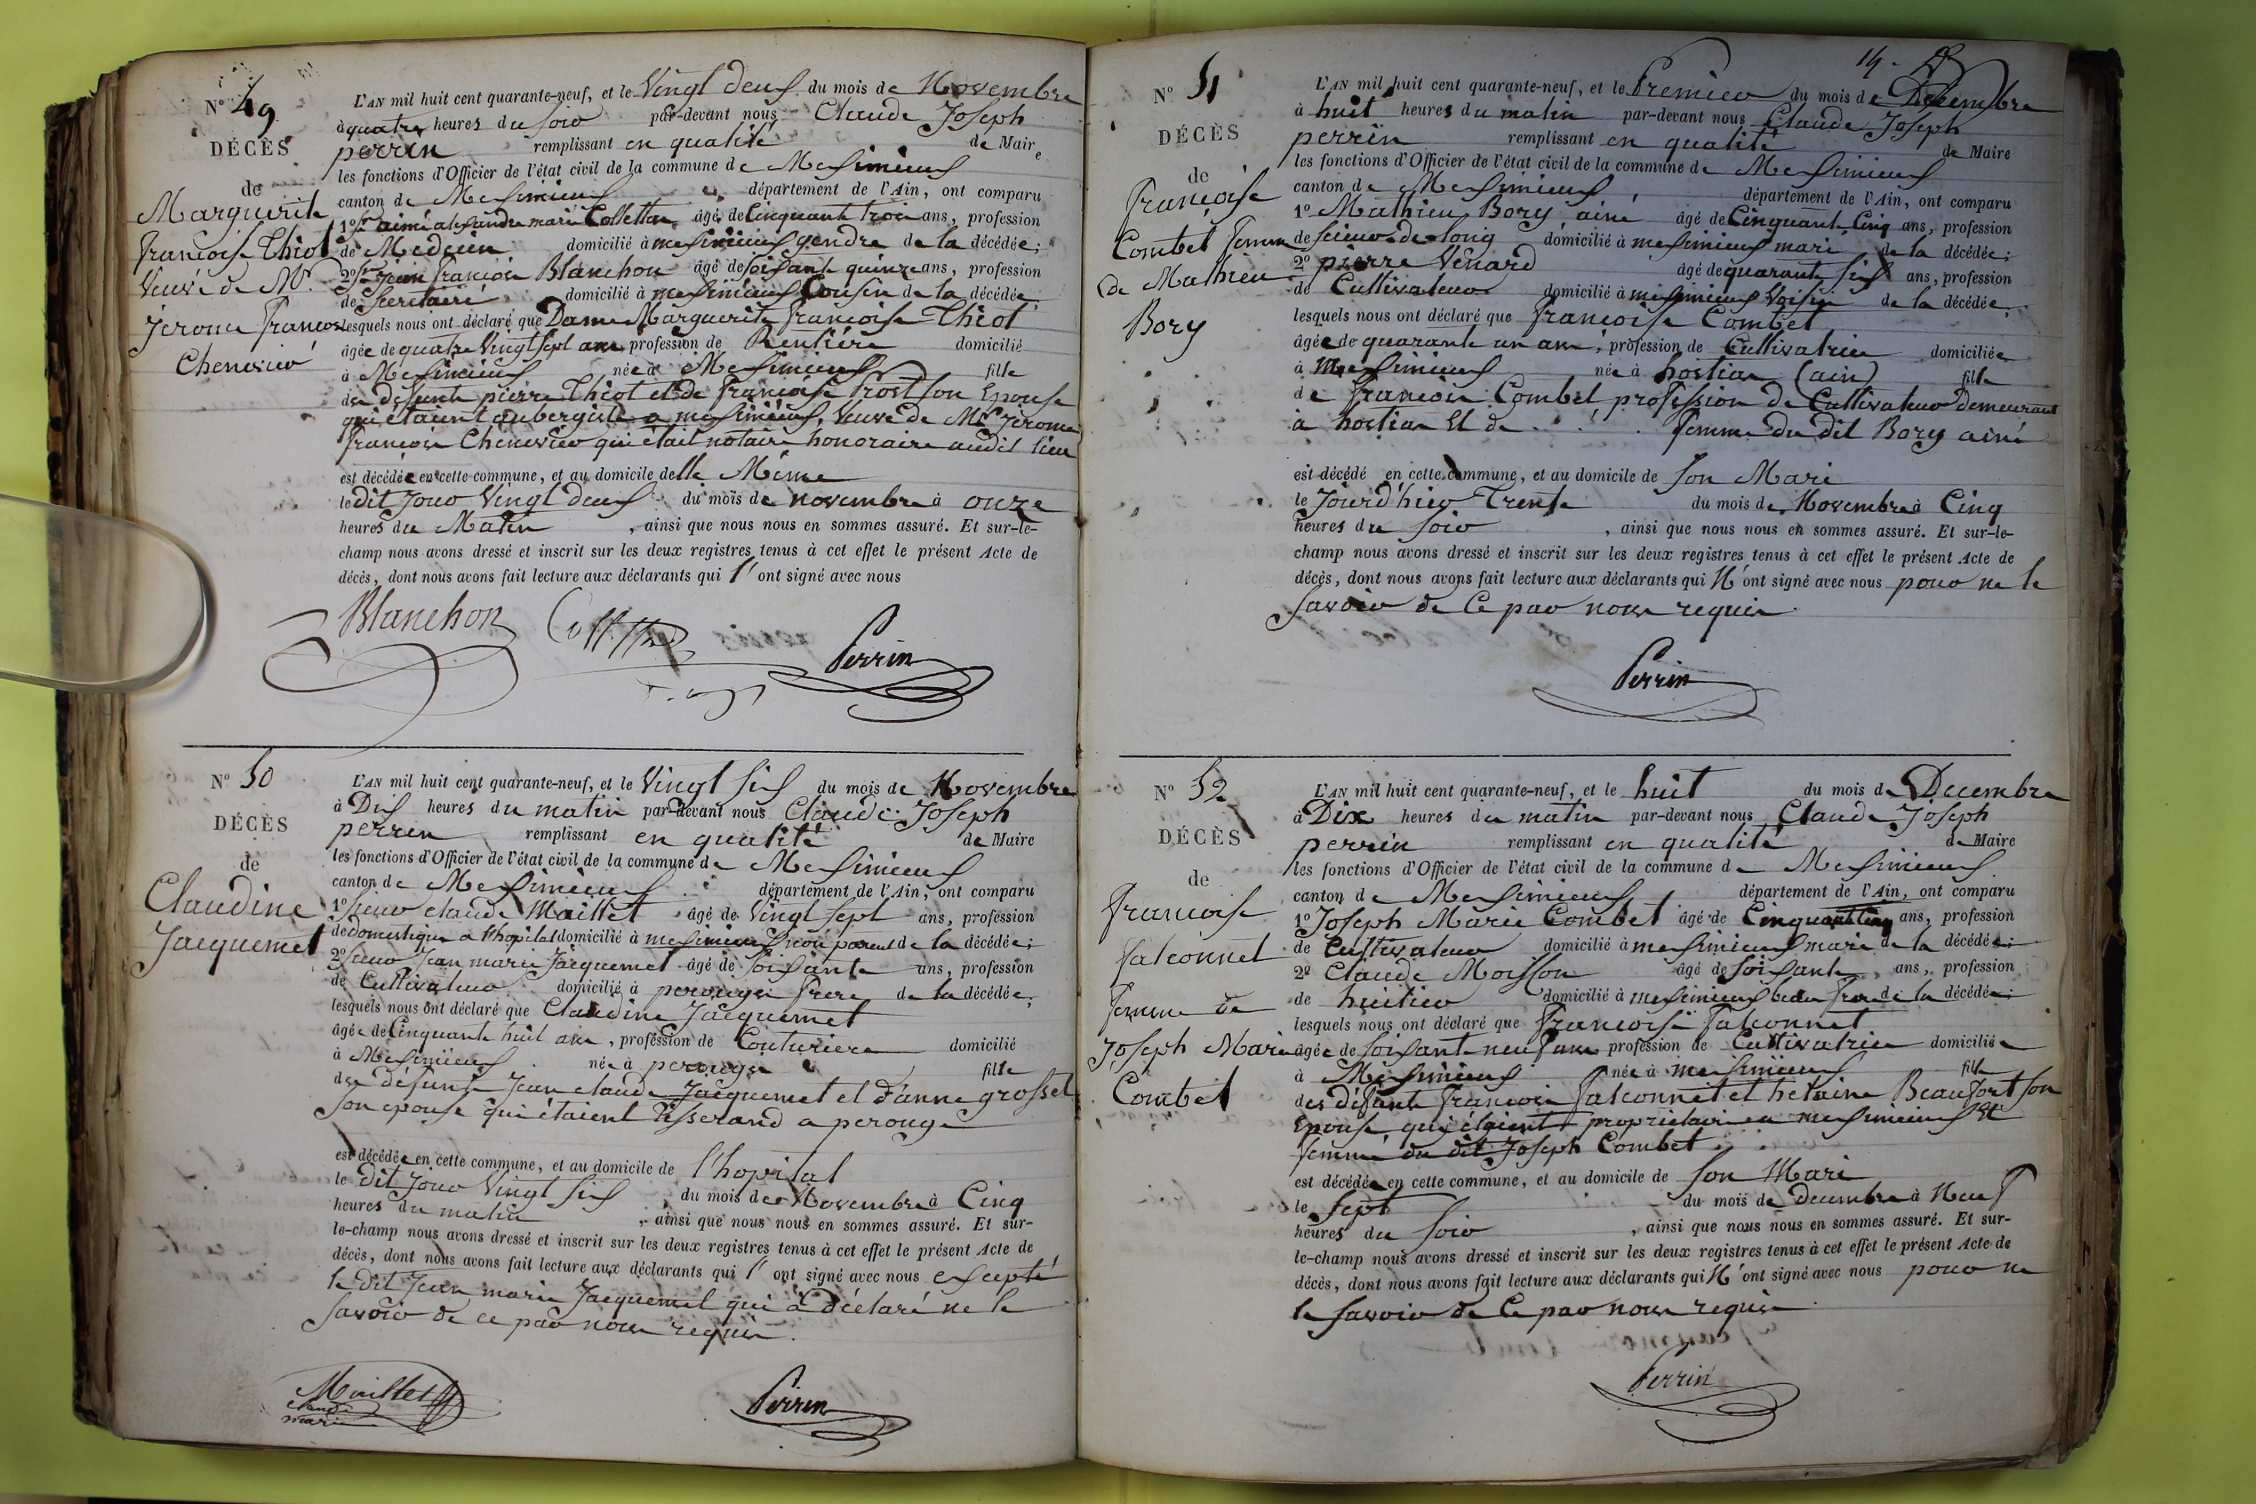 N° 49
DÉCÈS
de
Marguerite
françoise Thiot
Veuve de Mr.
Jerome françois
Chenevier
L'AN mil huit cent quarante-neuf, et le Vingt deux du mois de Novembre
à quatre heures du soir par-devant nous Claude Joseph
perrin remplissant en qualité de Maire
les fonctions d'Officier de l'état civil de la commune de Meximieux
canton de Meximieux département de l'Ain, ont comparu
1° Sr aimé alexandre marie Collettas âgé de Cinquante trois ans, profession
de Medecin domicilié à meximieux gendre de la décédée;
2° Sr Jean françois Blanchon âgé de soixante quinze ans, profession
de Secretaire domicilié à meximieux Cousin de la décédée;
lesquels nous ont déclaré que Dame Marguerite francoise Thiot
âgée de quatre Vingt sept ans profession de Rentière domicilié
à Meximieux née à Meximieux fille
des defunts pierre Thiot et de françoise Trost son Epouse
qui étaient aubergiste a meximieux, Veuve de Mr Jerome
francois Chenevier qui etait notaire honoraire audit lieu
est décédée en cette commune, et au domicile delle Même
le dit Jour Vingt deux du mois de novembre à onze
heures du Matin , ainsi que nous nous en sommes assuré. Et sur-le-
champ nous avons dressé et inscrit sur les deux registres tenus à cet effet le présent Acte de
décès, dont nous avons fait lecture aux déclarants qui l'ont signé avec nous
Blanchon Perrin
N° 50
DÉCÈS
de
Claudine
Jacquemet
L'AN mil huit cent quarante-neuf, et le Vingt six du mois de Novembre
à Dix heures du matin par-devant nous Claude Joseph
perrin remplissant en qualité de Maire
les fonctions d'Officier de l'état civil de la commune de Meximieux
canton de Meximieux département de l'Ain, ont comparu
1° Sieur claude Maillet âgé de Vingt sept ans, profession
de domestique a l'hopital domicilié à meximieux non parent de la décédée;
2° Sieur Jean marie Jacquemet âgé de soixante ans, profession
de Cultivateur domicilié à perouges frere de la décédée;
lesquels nous ont déclaré que Claudine Jacquemet
âgée de Cinquante huit ans, profession de Couturiere domicilié
à Meximieux née à perouges fille
des défunts Jean claude Jacquemet et d'anne grosset
son epouse qui étaient tisserand a perouge
est décédée en cette commune, et au domicile de l'hopital
le dit Jour Vingt six du mois de Novembre à Cinq
heures du matin , ainsi que nous nous en sommes assuré. Et sur-
le-champ nous avons dressé et inscrit sur les deux registres tenus à cet effet le présent Acte de
décès, dont nous avons fait lecture aux déclarants qui l'ont signé avec nous excepté
le dit Jean marie Jacquemet qui a déclaré ne le
savoir de ce par nous requis.
Maillet Perrin
claude
marie
14
N° 51
DÉCÈS
de
francoise
Combet femme
de Mathieu
Bory
L'AN mil huit cent quarante-neuf, et le Premier du mois de Décembre
à huit heures du matin par-devant nous Claude Joseph
perrin remplissant en qualité de Maire
les fonctions d'Officier de l'état civil de la commune de Meximieux
canton de Meximieux département de l'Ain, ont comparu
1° Mathieu Bory ainé âgé de Cinquante Cinq ans, profession
de scieur de long domicilié à meximieux mari de la décédée;
2° pierre Venard âgé de quarante six ans, profession
de Cultivateur domicilié à meximieux Voisin de la décédée,
lesquels nous ont déclaré que francoise Combet
âgée de quarante un ans, profession de Cultivatrice domiciliée
à Meximieux née à hostias (ain) fille
de francois Combet profession de Cultivateur demeurant
à hostias Et de . . . femme du dit Bory ainé
est décédé en cette commune, et au domicile de son Mari
le Jourd'hier Trente du mois de Novembre à Cinq
heures du soir , ainsi que nous nous en sommes assuré. Et sur-le-
champ nous avons dressé et inscrit sur les deux registres tenus à cet effet le présent Acte de
décès, dont nous avons fait lecture aux déclarants qui N'ont signé avec nous pour ne le
savoir de Ce par nous requis.
Perrin
N° 52
DÉCÈS
de
francoise
falconnet
femme de
Joseph Marie
Combet
L'AN mil huit cent quarante-neuf, et le huit du mois de Decembre
à Dix heures du matin par-devant nous Claude Joseph
perrin remplissant en qualité de Maire
les fonctions d'Officier de l'état civil de la commune de Meximieux
canton de Meximieux département de l'Ain, ont comparu
1° Joseph Marie Combet âgé de Cinquante Cinq ans, profession
de Cultivateur domicilié à meximieux mari de la décédée;
2° Claude Moisson âgé de soixante ans, profession
de huilier domicilié à meximieux beau frere de la décédée;
lesquels nous ont déclaré que francoise falconnet
âgée de soixante neuf ans profession de Cultivatrice domiciliée
à Meximieux née à meximieux fille
des défunts francois falconnet et helaine Beaufort son
Epouse qui étaient proprietaires a meximieux Et
femme du dit Joseph Combet.
est décédée en cette commune, et au domicile de son Mari
le sept du mois de decembre à Neuf
heures du soir , ainsi que nous nous en sommes assuré. Et sur-
le-champ nous avons dressé et inscrit sur les deux registres tenus à cet effet le présent Acte de
décès, dont nous avons fait lecture aux déclarants qui N'ont signé avec nous pour ne
le savoir de Ce par nous requis.
Perrin